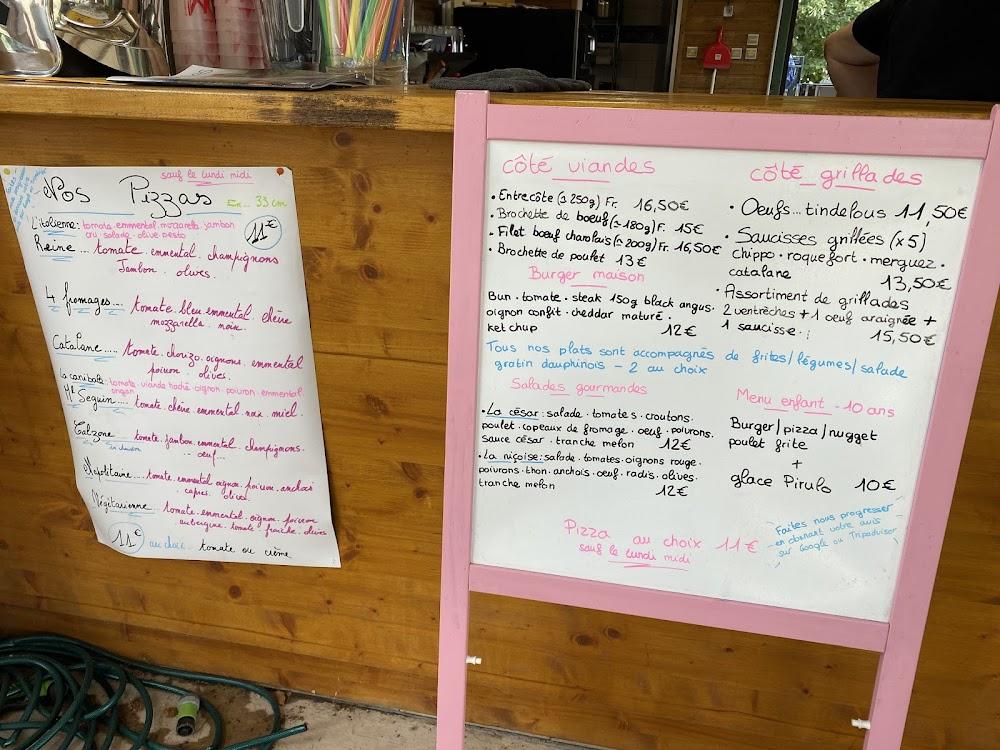 sauf le lundi midi
Nos Pizzas
En... 33 cm
L'italienne: tomate. emmental. mozzarella. jambon
cru. salade. olive. pesto
11€
Reine... tomate. emmental. champignons
Jambon. olives.
4 fromages.... tomate. bleu. emmental. chèvre
mozzarella. noix.
Catalane..... tomate. chorizo. oignons. emmental
poivron. olives.
La canibale: tomate. viande haché. oignon. poivron. emmental.
origan
Mr Seguin.... tomate. chèvre. emmental. noix. miel.
Calzone.... tomate. jambon. emmental. champignons.
en chausson .. oeuf...
Napolitaine.... tomate. emmental. oignon. poivron. anchois
. capres. olives.
Végétarienne.... tomate. emmental. oignon. poivron
aubergine. tomate fraîche. olives
11€ au choix.. tomate ou crème
côté viandes
• Entrecôte (± 250g) Fr. 16,50€
• Brochette de boeuf (± 180g) Fr. 15€
• Filet boeuf charolais (± 200g) Fr. 16,50€
• Brochette de poulet 13€
Burger maison
Bun. tomate. steak 150g black angus.
oignon confit. cheddar maturé.
ketchup 12€
côté grillades
• Oeufs... tindelous 11,50€
• Saucisses grillées (x5)
chippo. roquefort. merguez.
catalane 13,50€
• Assortiment de grillades
2 ventrèches + 1 oeuf araignée +
1 saucisse.. 15,50€
Tous nos plats sont accompagnés de frites/légumes/salade
gratin dauphinois - 2 au choix
Salades gourmandes
• La césar: salade. tomates. croutons.
poulet. copeaux de fromage. oeuf. poivrons.
sauce césar. tranche melon 12€
• La niçoise: salade. tomates. oignons rouge.
poivrons. thon. anchois. oeuf. radis. olives.
tranche melon 12€
Menu enfant - 10 ans
Burger/pizza/nugget
poulet frite
+
glace Pirulo 10€
Pizza au choix 11€
sauf le lundi midi
Faites nous progresser
en donnant votre avis
sur Google ou Tripadvisor